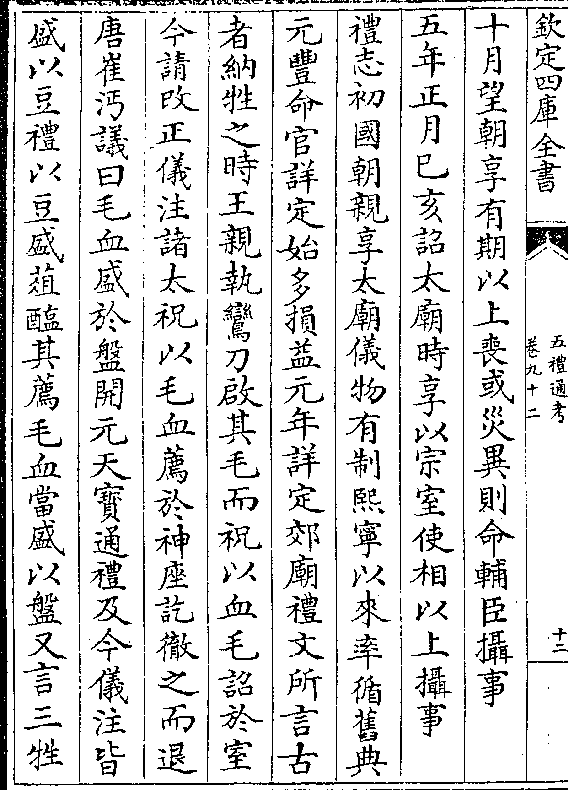 欽定四庫全書
五禮通考
卷九十二
十二
十月望朝享有期以上喪或災異則命輔臣攝事
五年正月已亥詔太廟時享以宗室使相以上攝事
禮志初國朝親享太廟儀物有制熙寧以來率循舊典
元豐命官詳定始多損益元年詳定郊廟禮文所言古
者納牲之時王親執鸞刀啟其毛而祝以血毛詔於室
今請改正儀注諸太祝以毛血薦於神座訖徹之而退
唐崔沔議曰毛血盛於盤開元天寶通禮及今儀注皆
盛以豆禮以豆盛葅醢其薦毛血當盛以盤又言三牲